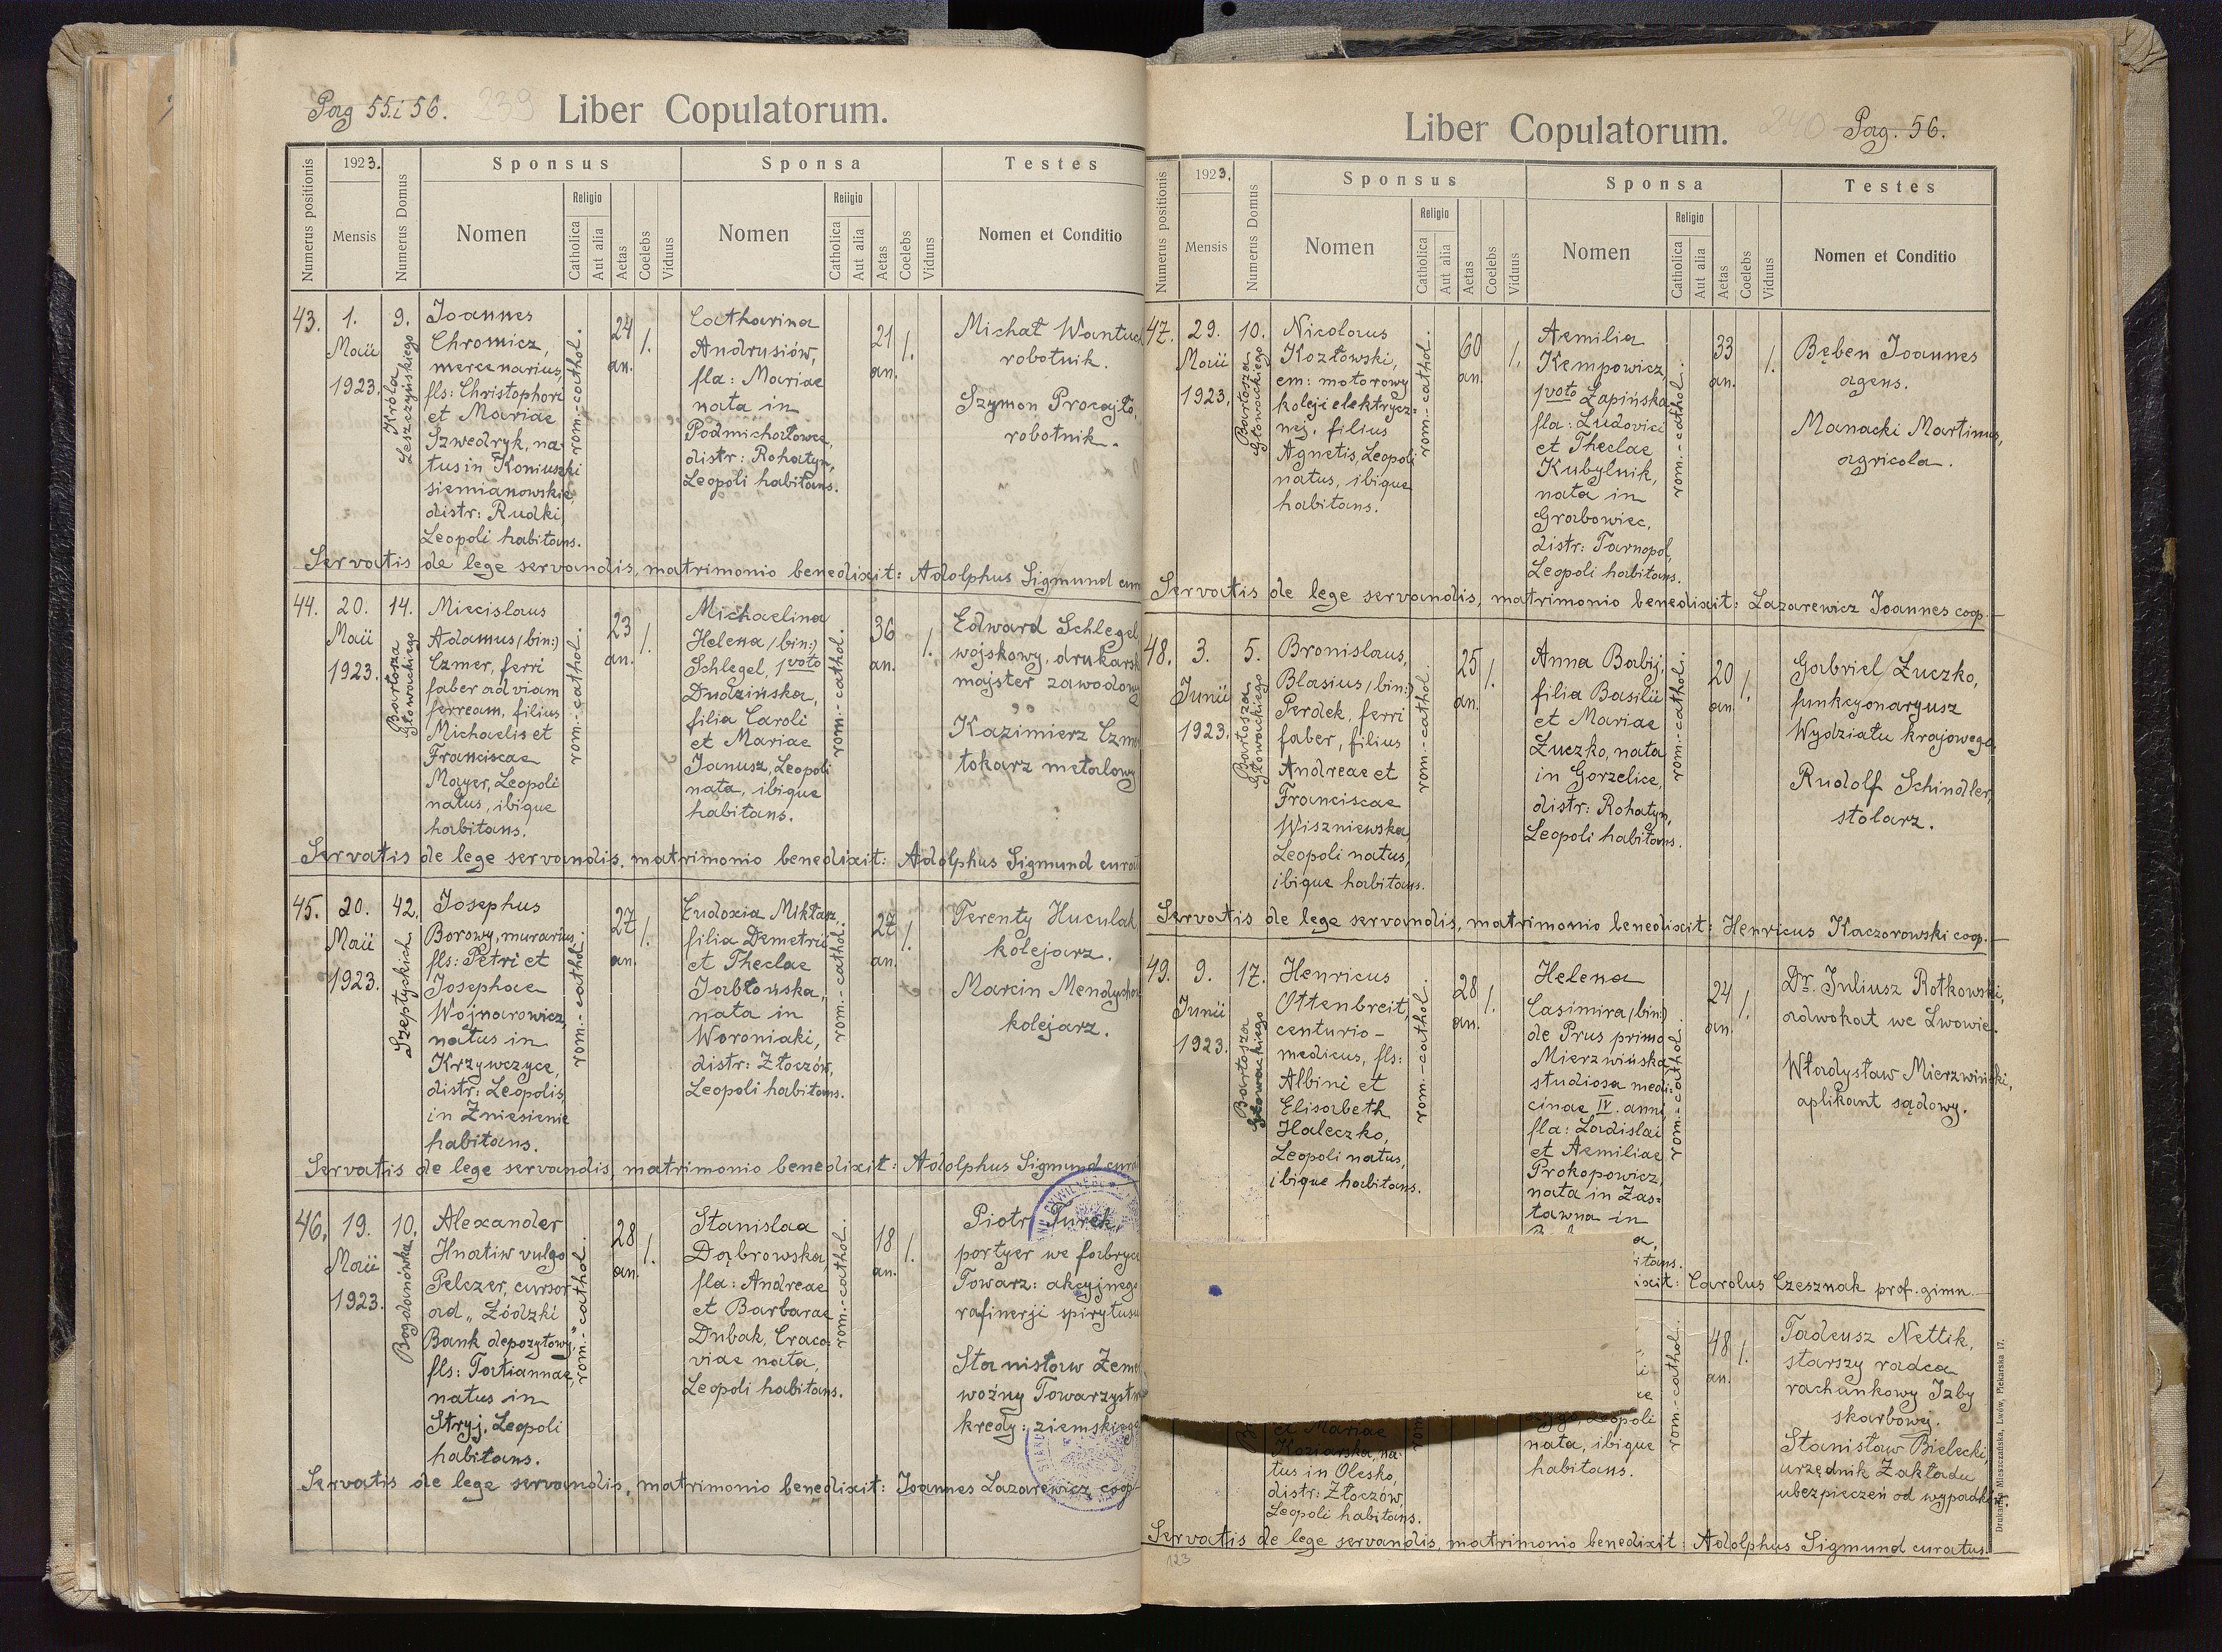 Pag 55 i 56. 239 Liber Copulatorum.
Numerus positionis
1923.
Mensis
Numerus Domus
Sponsus
Nomen
Religio
Catholica
Aut alia
Aetas
Coelebs
Viduus
Sponsa
Nomen
Religio
Catholica
Aut alia
Aetas
Coelebs
Viduus
Testes
Nomen et Conditio
43.
1.
Maii
1923.
9.
Króla
Leszczyńskiego
Joannes
Chromicz,
mercenarius,
fls: Christophori
et Mariae
Szwedryk, na-
tus in Koniuszki
siemianowskie,
distr: Rudki,
Leopoli habitans.
rom.-cathol.
24
an.
1.
Catharina
Andrusiów,
fla: Mariae
nata in
Podmichałowce,
distr: Rohatyn,
Leopoli habitans.
rom.-cathol.
21
an.
1.
Michał Wantuch
robotnik.
Szymon Procajło,
robotnik.
Servatis de lege servandis, matrimonio benedixit: Adolphus Sigmund
44.
20.
Maii
1923.
14.
Bartosza
Głowackiego
Miecislaus
Adamus (bin:)
Czmer, ferri
faber ad viam
ferream, filius
Michaelis et
Franciscae
Mayer, Leopoli
natus, ibique
habitans.
rom.-cathol.
23
an.
1.
Michaelina
Helena (bin:)
Schlegel, 1voto
Dudzińska,
filia Caroli
et Mariae
Janusz, Leopoli
nata, ibique
habitans.
rom.-cathol.
36
an.
1.
Edward Schlegel
wojskowy, drukarsk
majster zawodowy
Kazimierz
tokarz metalowy
Servatis de lege servandis, matrimonio benedixit: Adolphus Sigmund
45.
20.
Maii
1923.
42.
Szeptyckich
Josephus
Borowy, murarius
fls: Petri et
Josephae
Wojnarowicz,
natus in
Krzywczyce,
distr: Leopolis,
in Zniesienie
habitans.
rom.-cathol.
27
an.
1.
Eudoxia Miktasz,
filia Demetrii
et Theclae
Jabłońska,
nata in
Woroniaki,
distr: Złoczów,
Leopoli habitans.
rom.-cathol.
27
an.
1.
Terenty Huculak
kolejarz.
Marcin
kolejarz.
Servatis de lege servandis, matrimonio benedixit: Adolphus Sigmund
46.
19.
Maii
1923.
10.
Bogdanówka
Alexander
Hnatiw vulgo
Pelczer, cursor
ad „Łódzki
Bank depozytowy",
fls: Tatiannae,
natus in
Stryj, Leopoli
habitans.
rom.-cathol.
28
an.
1.
Stanislaa
Dąbrowska,
fla: Andreae
et Barbarae
Dubak, Craco-
viae nata,
Leopoli habitans.
rom.-cathol.
18
an.
1.
Piotr Turek,
portyer we fabryce
Towarz: akcyjnego
rafinerji spirytusu
Stanisław
woźny Towarzystwa
kredy: ziemskiego
Servatis de lege servandis, matrimonio benedixit: Joannes Lazarewicz coop.
Liber Copulatorum. 240 Pag. 56.
Numerus positionis
1923.
Mensis
Numerus Domus
Sponsus
Nomen
Religio
Catholica
Aut alia
Aetas
Coelebs
Viduus
Sponsa
Nomen
Religio
Catholica
Aut alia
Aetas
Coelebs
Viduus
Testes
Nomen et Conditio
47.
29.
Maii
1923.
10.
Bartosza
Głowackiego
Nicolaus
Kozłowski,
em: motorowy
koleji elektrycz-
nej, filius
Agnetis, Leopoli
natus, ibique
habitans.
rom.-cathol.
60
an.
1.
Aemilia
Kempowicz
1voto Łapińska
fla: Ludovici
et Theclae
Kubylnik,
nata in
Grabowiec,
distr: Tarnopol,
Leopoli habitans.
rom.-cathol.
33
an.
1.
Bęben Joannes
agens.
Manacki Martinus,
agricola.
Servatis de lege servandis, matrimonio benedixit: Lazarewicz Joannes coop.
48.
3.
Junii
1923.
5.
Bartosza
Głowackiego
Bronislaus,
Blasius (bin:)
Perdek, ferri
faber, filius
Andreae et
Franciscae
Wiszniewska,
Leopoli natus,
ibique habitans.
rom.-cathol.
25
an.
1.
Anna Babij,
filia Basilii
et Mariae
Łuczko, nata
in Gorzelice,
distr: Rohatyn,
Leopoli habitans.
rom.-cathol.
20
an.
1.
Gabriel Łuczko,
funkcyonaryusz
Wydziału krajowego
Rudolf Schindler,
stolarz.
Servatis de lege servandis, matrimonio benedixit: Henricus Kaczorowski coop.
49.
9.
Junii
1923.
17.
Bartosza
Głowackiego
Henricus
Ottenbreit,
centurio-
medicus, fls:
Albini et
Elisabeth
Haleczko,
Leopoli natus,
ibique habitans.
rom.-cathol.
28
an.
1.
Helena
Casimira (bin:)
de Prus primo
Mierzwińska,
studiosa medi-
cinae IV. anni
fla: Ladislai
et Aemiliae
Prokopowicz,
nata in Zas-
tawna in
rom.-cathol.
24
an.
1.
Dr. Juliusz Rotkowski,
adwokat we Lwowie.
Władysław Mierzwiński,
aplikant sądowy.
Carolus Czesznak prof. gimn.
et Mariae
Koziarska, na-
tus in Olesko,
distr: Złoczów,
Leopoli habitans.
Leopoli
nata, ibique
habitans.
rom.-cathol.
48
an.
1.
Tadeusz Nettik,
starszy radca
rachunkowy Izby
skarbowej.
Stanisław Bielecki,
urzędnik Zakładu
ubezpieczeń od wypadków.
Servatis de lege servandis, matrimonio benedixit: Adolphus Sigmund curatus.
123
Drukarnia Mieszczańska, Lwów, Piekarska 17.